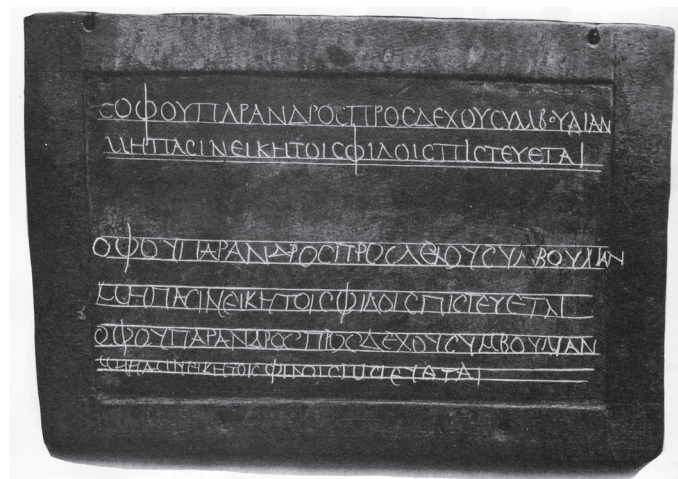 ϹΟΦΟΥΠΑΡΑΝΔΡΟϹΠΡΟϹΔΕΧΟΥϹΥΜΒΟΥΛΙΑΝ
ΜΗΠΑϹΙΝΕΙΚΗΤΟΙϹΦΙΛΟΙϹΠΙϹΤΕΥΕΤΑΙ
ΟΦΟΥΠΑΡΑΝΔΡΟϹΠΡΟϹΔΕΧΟΥϹΥΜΒΟΥΛΙΑΝ
ΜΗΠΑϹΙΝΕΙΚΗΤΟΙϹΦΙΛΟΙϹΠΙϹΤΕΥΕΤΑΙ
ΟΦΟΥΠΑΡΑΝΔΡΟϹΠΡΟϹΔΕΧΟΥϹΥΜΒΟΥΛΙΑΝ
ΜΗΠΑϹΙΝΕΙΚΗΤΟΙϹΦΙΛΟΙϹΠΙϹΤΕΥΕΤΑΙ